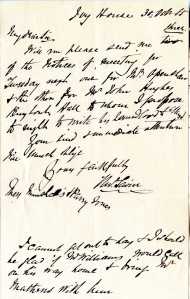 Ivy House 30, Oct
My dear Sir
Will you please send me
of the Notices of meeting for
Tuesday next one for Mr
& the other for Mr John Hughes
Hall to whom I propose
to night to write by
Your kind & immediate attention
Will much oblige
Yours faithfully
I cannot get out to day & I should
be glad if Mr Williams would call
on his way home & bring Mr
Mathews with him